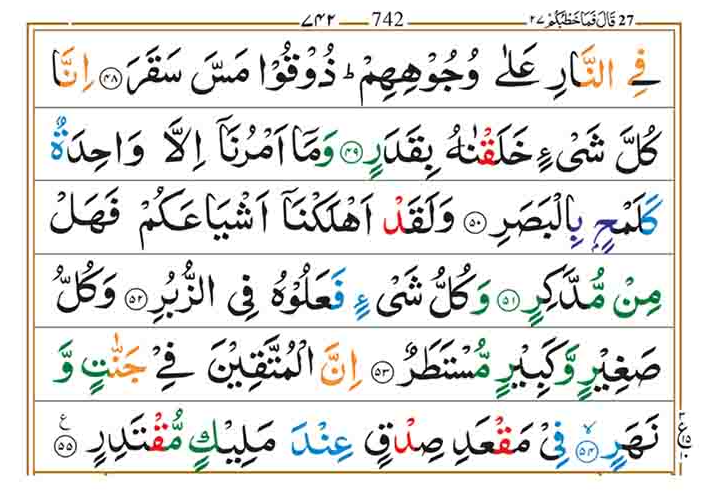 27 قَالَ فَمَا خَطْبُكُمْ ٢٧ 742 ٧٤٢
فِي النَّارِ عَلٰى وُجُوْهِهِمْ ؕ ذُوْقُوْا مَسَّ سَقَرَ ﴿۴۸﴾ اِنَّا
كُلَّ شَىْءٍ خَلَقْنٰهُ بِقَدَرٍ ﴿۴۹﴾ وَمَاۤ اَمْرُنَاۤ اِلَّا وَاحِدَةٌ
كَلَمْحٍۭ بِالْبَصَرِ ﴿۵۰﴾ وَلَقَدْ اَهْلَكْنَاۤ اَشْيَاعَكُمْ فَهَلْ
مِنْ مُّدَّكِرٍ ﴿۵۱﴾ وَكُلُّ شَىْءٍ فَعَلُوْهُ فِى الزُّبُرِ ﴿۵۲﴾ وَكُلُّ
صَغِيْرٍ وَّكَبِيْرٍ مُّسْتَطَرٌ ﴿۵۳﴾ اِنَّ الْمُتَّقِيْنَ فِىْ جَنّٰتٍ وَّ
نَهَرٍ ﴿۵۴﴾ فِىْ مَقْعَدِ صِدْقٍ عِنْدَ مَلِيْكٍ مُّقْتَدِرٍ ﴿۵۵﴾